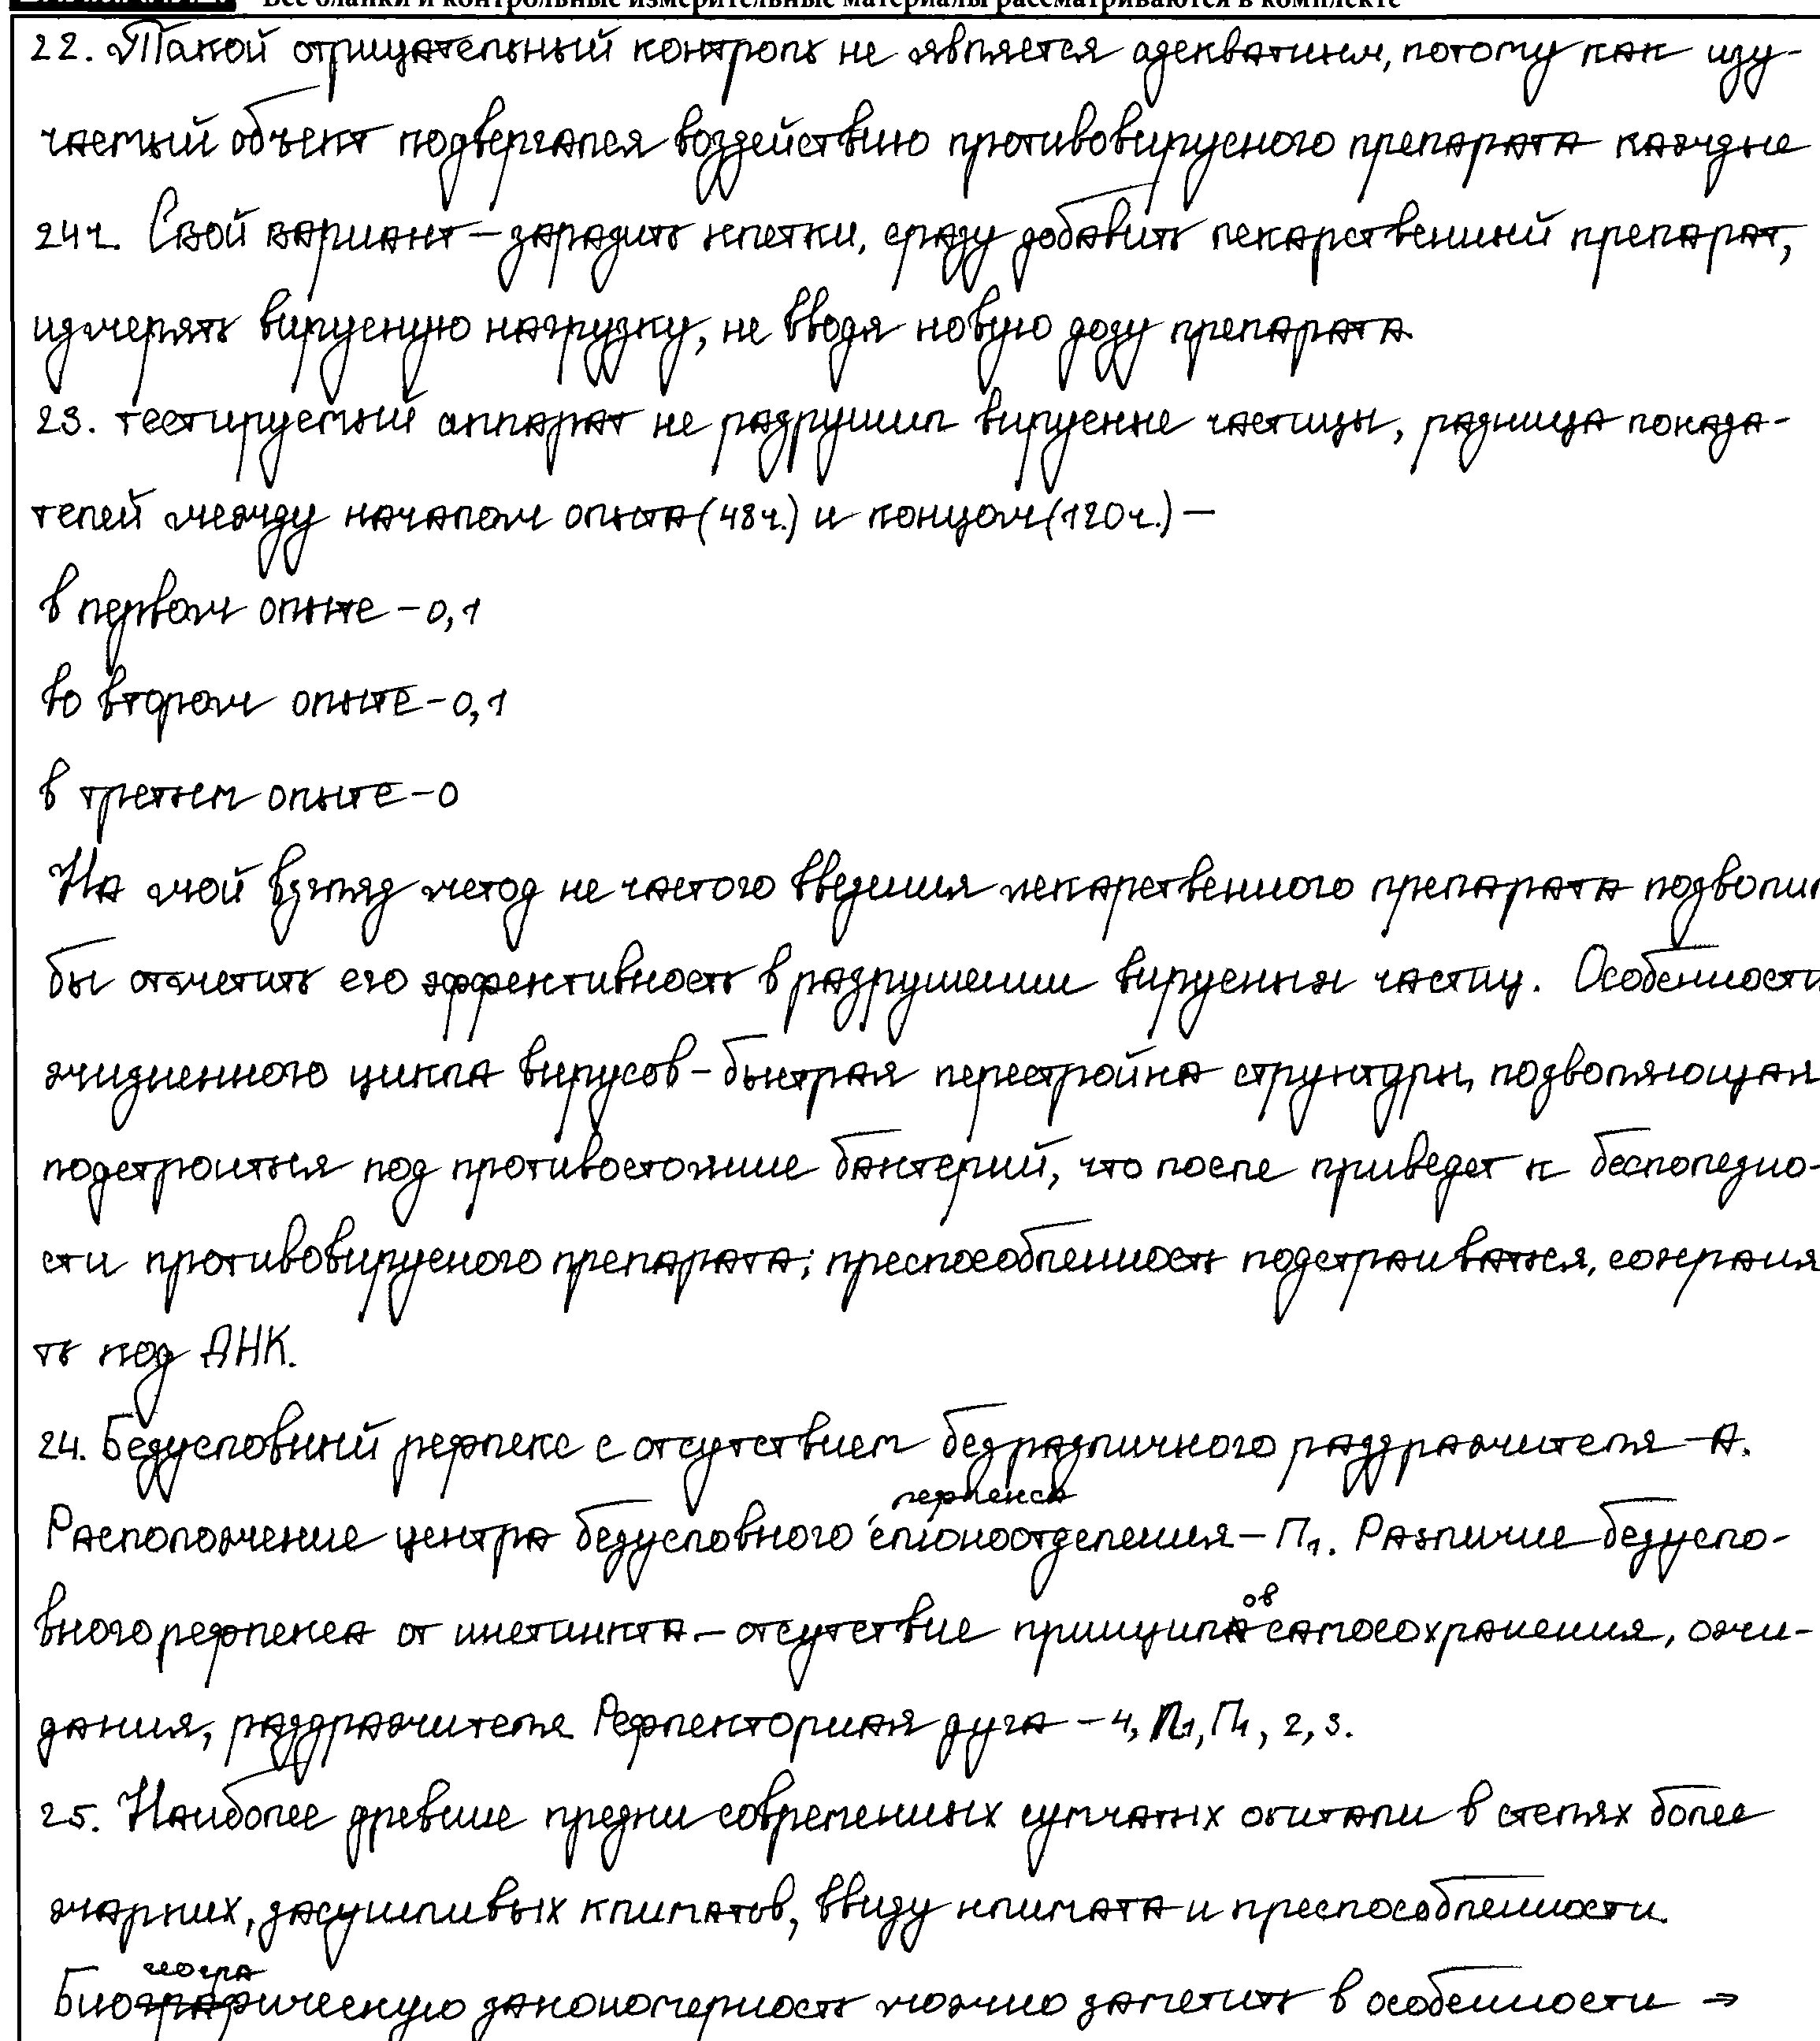 Все бланки и контрольные измерительные материалы рассматриваются в комплекте
22. Такой отрицательный контроль не является адекватным, потому как изу-
чаемый объект подвергался воздействию противовирусного препарата каждые
24ч. Свой вариант – заразить клетки, сразу добавить лекарственный препарат,
измерять вирусную нагрузку, не вводя новую дозу препарата.
23. тестируемый аппарат не разрушил вирусные частицы, разница показа-
телей между началом опыта (48ч.) и концом (120ч.) –
в первом опыте – 0,1
во втором опыте – 0,1
в третьем опыте – 0
На мой взгляд метод не частого введения лекарственного препарата позволил
бы отметить его эффективность в разрушении вирусных частиц. Особенности
жизненного цикла вирусов – быстрая перестройка структуры, позволяющая
подстроиться под противостояние бактерий, что после приведет к бесполезно-
сти противовирусного препарата; преспособленность подстраиваться, сохраня
ть код ДНК.
24. Безусловный рефлекс с отсутствием безразличного раздражителя – А.
Расположение центра безусловного рефлекса слюноотделения – П1. Различие безусло-
вного рефлекса от инстинкта – отсутствие принципов самосохранения, ожи-
дания, раздражителя. Рефлекторная дуга – 4, П1, П4, 2, 3.
25. Наиболее древние предки современных сумчатых обитали в степях более
жарких, засушливых климатов, ввиду климата и преспособленности.
Биогеографическую закономерность можно заметить в особенности →